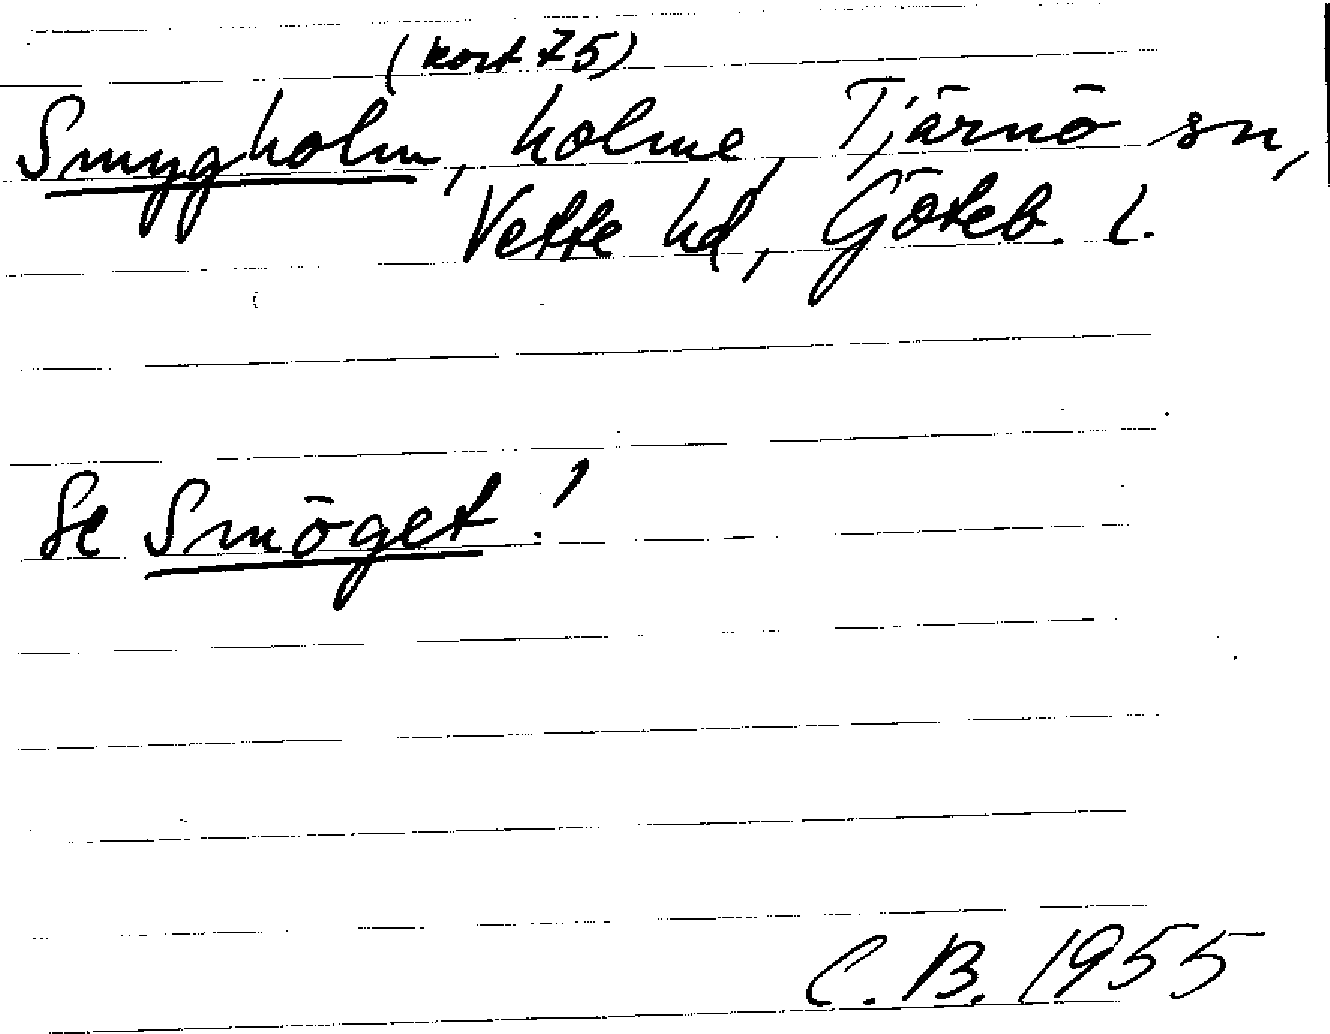 (kort 75)
Smygholm, holme, Tjärnö sn,
Vette hd, Göteb. l.
Se Smöget!
C. B. 1955